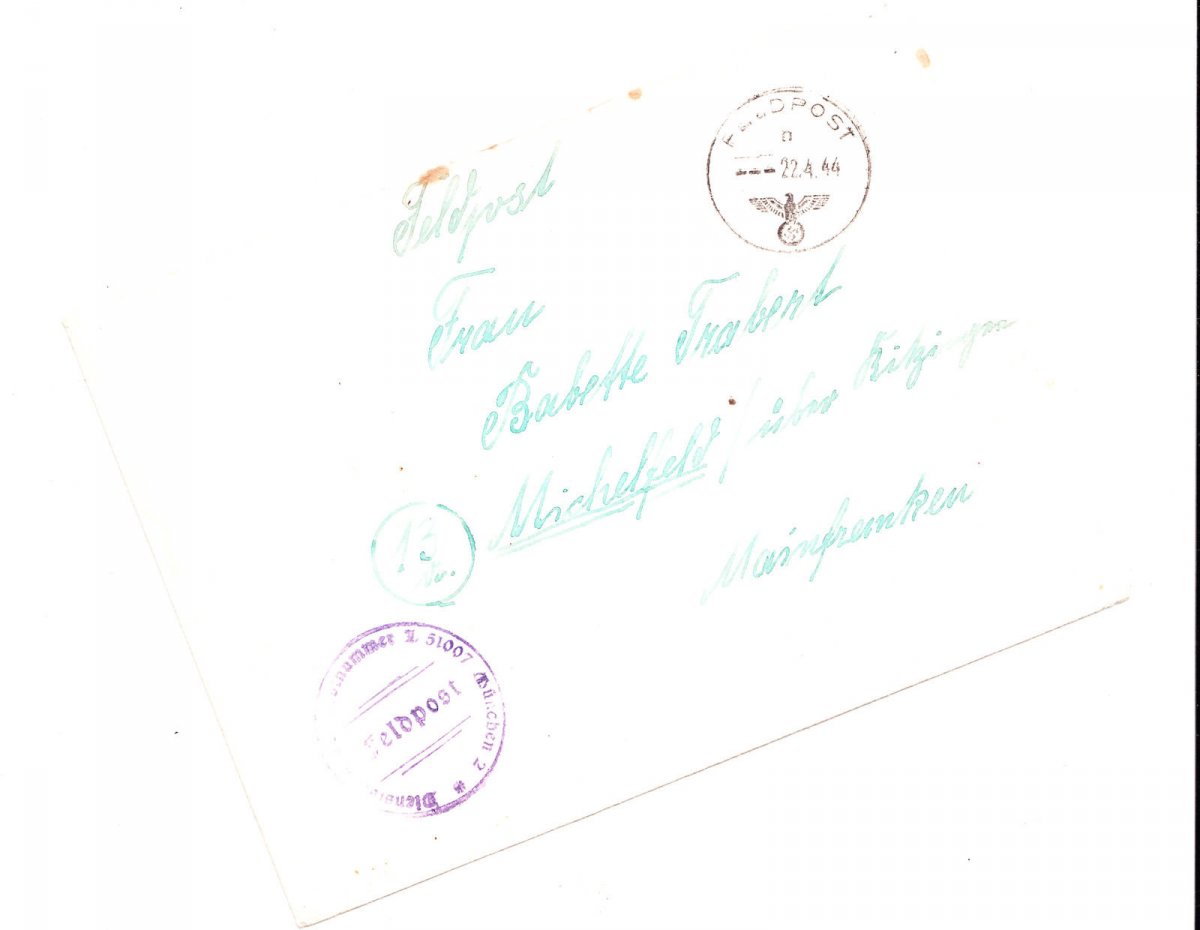 FELDPOST
a
--- 22.4.44
Feldpost
Frau
Babette Trabert
Michelfeld / über Kitzingen
13
Mainfranken
L 51007 München 2 *
Feldpost